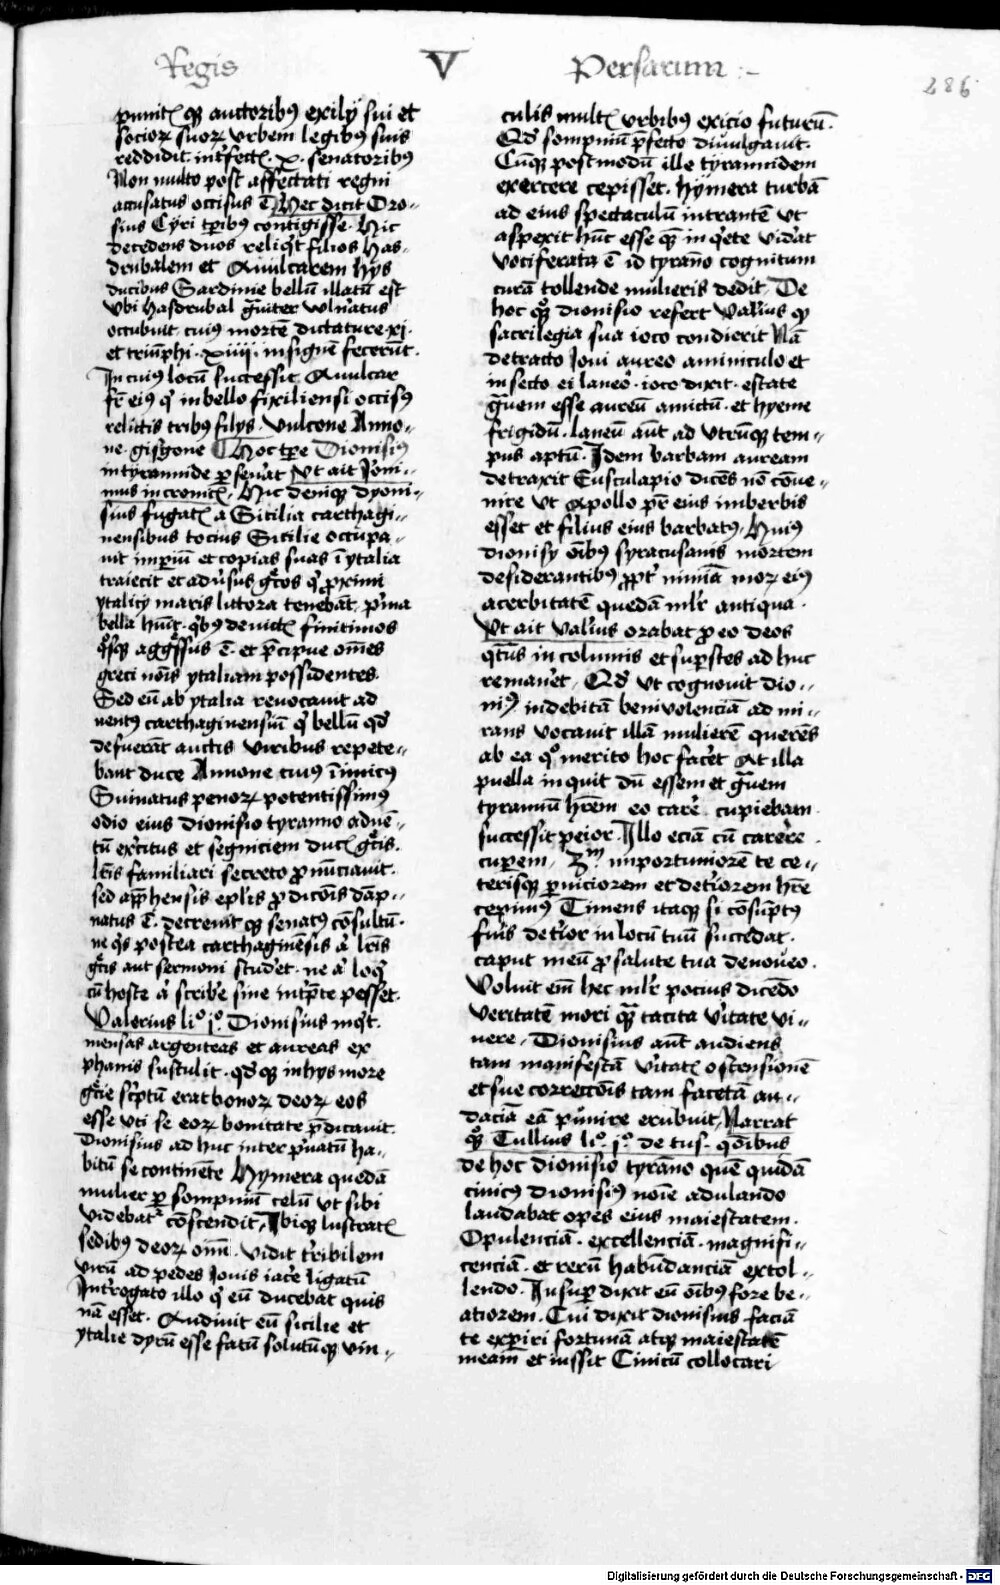 Regis V Persarum :-
286
punit&#x27; qꝫ auctoribꝰ exilij sui et
socioꝝ suoꝝ vrbem legibꝰ suis
reddidit. int&#x27;fect&#x27; .x. senatoribꝰ
Non multo post affectati regni
accusatus occisus ē Hec dicit Oro-
sius Cyri tꝑibꝰ contigisse. Hic
decedens duos reliq̄t filios Has-
drubalem et Amilcarem hys
ducibus Sardinie bellū illatū est
vbi hasdrubal gͣuiter vln̄atus
occubuit. cuiꝰ mortē dictature xi.
et triūphi .xiiii. insignē fecerūt.
In cuiꝰ locū successit Amilcar
fr̄ eiꝰ qͥ in bello siciliensi occisꝰ
relictis tribꝰ filys. vulcone Anno-
ne. gisgone Hoc tꝑe Dionisiꝰ
in tyrannide ꝑseu&#x27;at Vt ait Joni-
mus in cronic&#x27;. Hic deniqꝫ dyoni-
sius fugat&#x27; a Sicilia carthagi-
nensibus tocius Sicilie occupa-
uit imperiū et copias suas ī ytalia
traiecit et adu&#x27;sus gͤcos qͥ ꝓximi
ytalicy maris littora tenebāt. pͥma
bella hūit. qͥbꝰ deuict&#x27; finitimos
qͦsqꝫ aggͤssus ē. et p̄cipue om̄es
greci nōis ytaliam possidentes.
Sed eū ab ytalia reuocauit ad
uentꝰ carthaginensiū qͥ bellū qd̄
defuerāt auctis viribus repete-
bant duce Annone cuiꝰ īimicꝰ
Suinatus penoꝝ potentissimꝰ
odio eius dionisio tyranno aduē-
tū ex&#x27;citus et segniciem duc&#x27; gͤcis.
lr̄is familiari secreto ꝓnūciauit.
sed app̄hensis eplīs ꝓdicōis dāp-
natus ē. decreuit qꝫ senatꝰ cōsultū.
ne qͥs postea carthaginēsis aͭ lr̄is
gͤcis aut sermoni stud&#x27;et. ne aͭ loqͥ
cū hoste aͭ scribe sine int&#x27;p̄te posset.
Valerius liº jº. Dionisius inqͥt.
mensas argenteas et aureas ex
phanis sustulit. qd̄ qꝫ in hys more
gͤcie scͥptū erat bonoꝝ deoꝝ eos
esse vti se eoꝝ bonitate p̄dicauit.
Dionisius ad huc inter pͥuatū ha-
bitū se continēte Hymera quedā
mulier ꝑ sompniū celū vt sibi
videbat&#x27; cōscendit. Ibiqꝫ lustrat&#x27;
sedibꝰ deoꝝ oīm. vidit t&#x27;ribilem
virū ad pedes Jouis iac&#x27;e ligatū
Int&#x27;rogato illo qͥ eū ducebat quis
nā esset. Audiuit eū sicilie et
ytalie dyrū esse fatū solutūqꝫ vin-
culis mult&#x27; vrbibꝰ exicio futurū.
Qd̄ sompniū p̄fecto diuulgauit.
Cūqꝫ postmodū ille tyrannidem
exercere cepisset. hymera turbā
ad eius spectaculū intrantē vt
aspexit hūc esse quē in qͥete vid&#x27;at
vociferata ē id tyrāno cognitum
curā tollende mulieris dedit De
hoc qͦꝫ dionisio refert Valius qꝫ
sacrilegia sua ioco condierit Nā
detracto Joui aureo aminiculo et
iniecto ei laneo. ioco dixit. estate
gͣuem esse aureū amictū. et hyeme
frigidū. laneū aūt ad vtrūqꝫ tem-
pus aptū. Idem barbam auream
detraxit Eusculapio dicēs nō cōue-
nire vt Apollo pr̄ eius imberbis
esset et filius eius barbatꝰ. Huiꝰ
dionisy oībꝰ syracusanis mortem
desiderantibꝰ ꝓpt&#x27; nimiā moꝝ eiꝰ
acerbitatē quedā mlr̄ antiqua.
Vt ait Valius orabat ꝓ eo deos
qͣtꝰ in columis et suꝑstes ad huc
remaneret. Qd̄ vt cognouit dio-
niꝰ indebitā beniuolenciā ad mi-
rans vocauit illā mulierē querēs
ab ea qͦ merito hoc fac&#x27;et At illa
puella inquit dū essem et gͣuem
tyrannū hr̄em eo car&#x27;e cupiebam.
successit peior. Illo eciā cū car&#x27;re
cuperem. 3m importuniorē te ce-
terisqꝫ ꝑniciorem et det&#x27;iorem hr̄e
cepimꝰ Timens itaqꝫ si cōsūptꝰ
fu&#x27;is det&#x27;ior in locū tuū succedat.
caput meū ꝓ salute tua deuoueo.
Voluit em̄ hec mlr̄ pocius dicēdo
veritatē mori qͣꝫ tacita v&#x27;itate vi-
uere. Dionisius aūt audiens
tam manifestā v&#x27;itat&#x27; ostensionē
et sue correccōis tam facetā au-
daciā eā punire erubuit. Narrat
qͦꝫ Tullius liº jº de tus. qōibus
de hoc dionisio tyrāno quē quidā
cinicꝰ dionisiꝰ noīe adulando
laudabat opes eius maiestatem.
Opulenciā. excellenciā. magnifi-
cenciā. et rerū habūdanciā extol-
lendo. Insuꝑ dixit eū oībꝰ fore be-
atiorem. Cui dixit dionisius faciā
te exꝑiri fortunā atqꝫ maiestatē
meam̄ et iussit Cinicū collocari
Digitalisierung gefördert durch die Deutsche Forschungsgemeinschaft - DFG